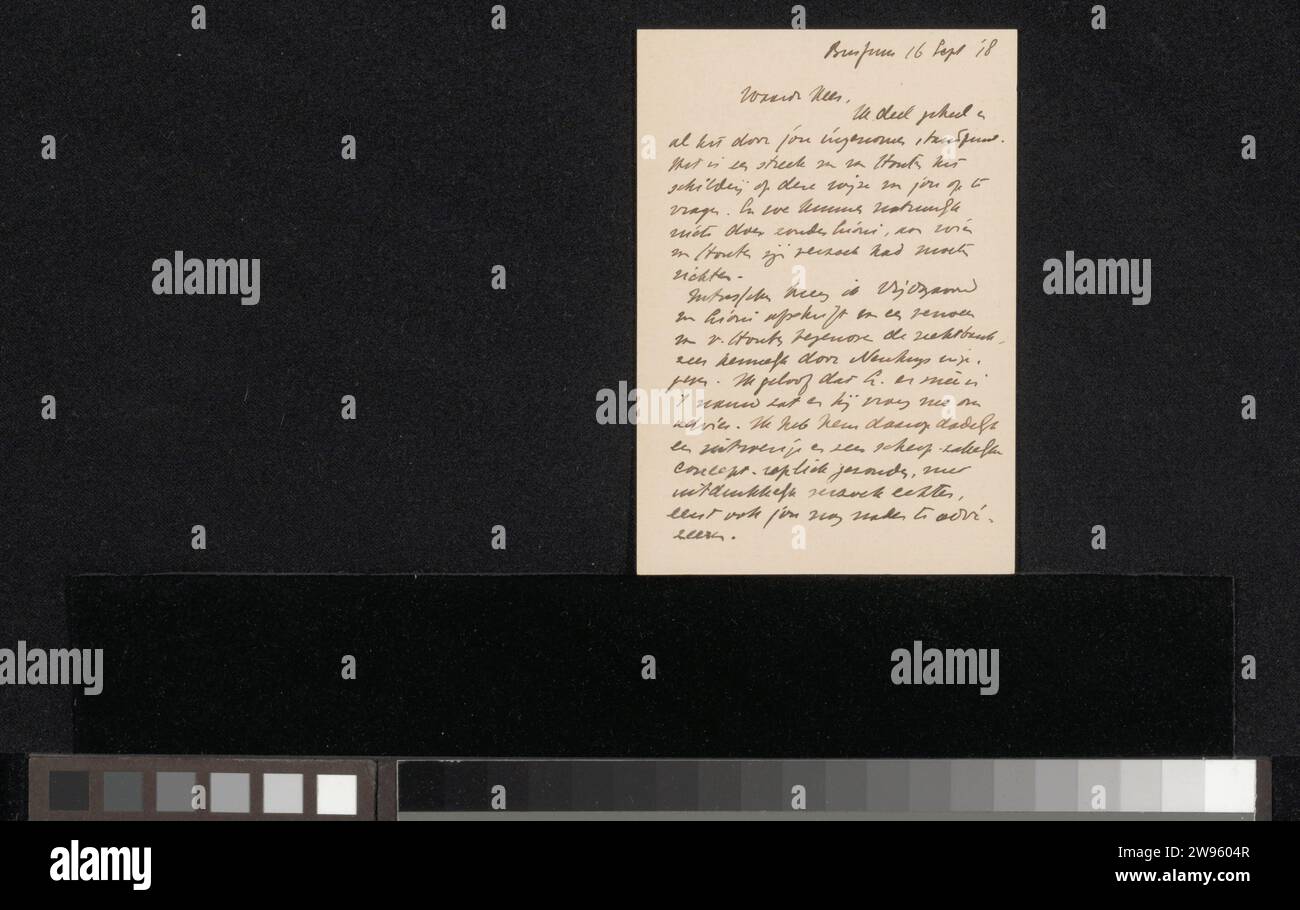 Bussum 16 Sept '18
Waarde Kees,
Ik deel geheel en
al het door jou ingenomen standpunt.
Het is een streek van van Houten het
schilderij op deze wijze van jou op te
vragen. En we kunnen natuurlijk
niets doen zonder, aan wien
van Houten zijn verzoek had moeten
richten.
Intusschen kreeg ik Vrijdagavond
van afschrift van een
van v. Houten tegenover de rechtbank,
zeer door Neuhuys inge-
geven. Ik geloof dat G. er mee in
't nauw zat en hij vroeg me om
advies. Ik heb hem daarop dadelijk
een en een scherp-zakelijke
concept-repliek gezonden, met
uitdrukkelijk verzoek echter,
eerst ook jou nog nader te advi-
seeren.
alamy
alamy
alamy
alamy
alamy
alamy
Image ID: 2W9604R
www.alamy.com